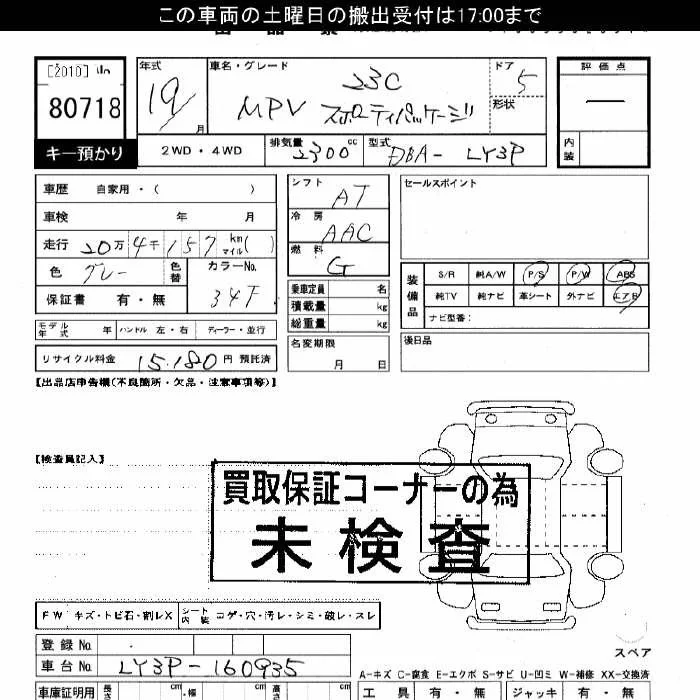 この車両の土曜日の搬出受付は17:00まで
[2010]
80718
キー預かり
年式 19 月
車名・グレード 23C
MPV スポーティパッケージ
ドア 5
形状
評価点
—
内装
2WD・4WD
排気量 2300 cc
型式 DBA- LY3P
車歴 自家用・( )
車検 年 月
走行 20万 4千 157 km マイル( )
色 グレー 色替
カラーNo. 34F
保証書 有・無
シフト AT
冷房 AAC
燃料 G
乗車定員 名
積載量 kg
総重量 kg
名変期限 月 日
セールスポイント
装備品
S/R 純A/W P/S P/W ABS
純TV 純ナビ 革シート 外ナビ エアB
ナビ型番:
後日品
モデル年式 年 ハンドル 左・右 ディーラー・並行
リサイクル料金 15.180 円 預託済
【出品店申告欄(不良箇所・欠品・注意事項等)】
【検査員記入】
買取保証コーナーの為
未検査
FW キズ・トビ石・割レX シート内装 コゲ・穴・汚レ・シミ・破レ・スレ
登録No.
車台No. LY3P-160935
スペア
A-キズ C-腐食 E-エクボ S-サビ U-凹ミ W-補修 XX-交換済
車庫証明用 長さ cm ・幅 cm 高さ cm
工具 有・無 ジャッキ 有・無